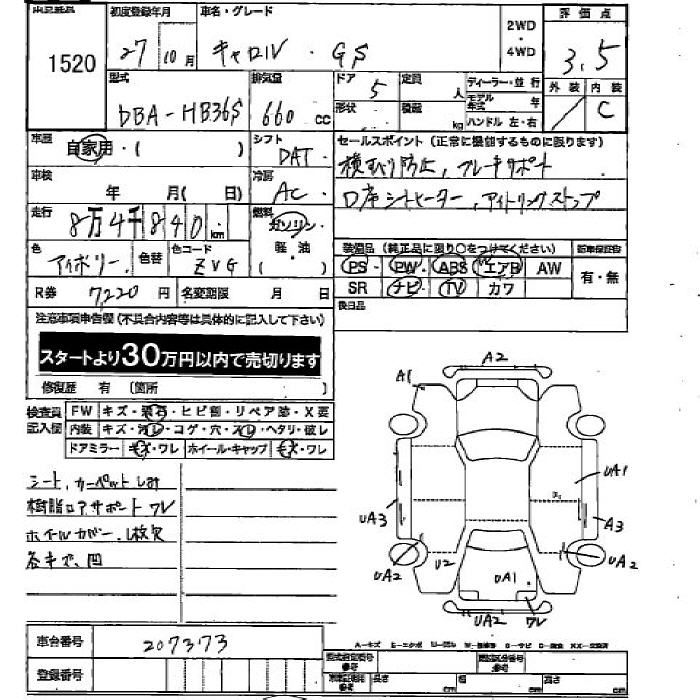 出品番号
1520
初度登録年月
27 10月
車名・グレード
キャロル・GS
2WD・4WD
評価点
3.5
外装 内装
C
型式
DBA-HB36S
排気量
660 cc
ドア
5
形状
定員 人
積載 kg
ディーラー・並行
モデル年式 年
ハンドル 左・右
車歴
自家用・( )
シフト
DAT
セールスポイント(正常に機能するものに限ります)
横すべり防止、ブレーキサポート
D席シートヒーター、アイドリングストップ
車検
年 月( 日)
冷房
AC
走行
8万4千840 km
燃料
ガソリン・軽・油( )
色
アイボリー
色替
色コード
ZVG
装備品(純正品に限り○をつけてください)
PS・PW・ABS・エアB AW
SR ナビ・TV・カワ
新車保証書
有・無
R券 7,220円
名変期限 月 日
後日品
注意事項申告欄(不具合内容等は具体的に記入して下さい)
スタートより30万円以内で売切ります
修復歴 有 〔箇所 〕
検査員記入欄
FW キズ・飛石・ヒビ割・リペア跡・X要
内装 キズ・汚レ・コゲ・穴・スレ・ヘタリ・破レ
ドアミラー キズ・ワレ ホイール・キャップ キズ・ワレ
シート、カーペットしみ
樹脂ロアサポートワレ
ホイールカバー1枚欠
各キズ、凹
A2
A1
UA1
UA3
A3
UA2
U2
UA1
UA2
UA2
ワレ
車台番号
207373
登録番号
型式指定番号
類別区分番号
長さ cm 幅 cm 高さ cm